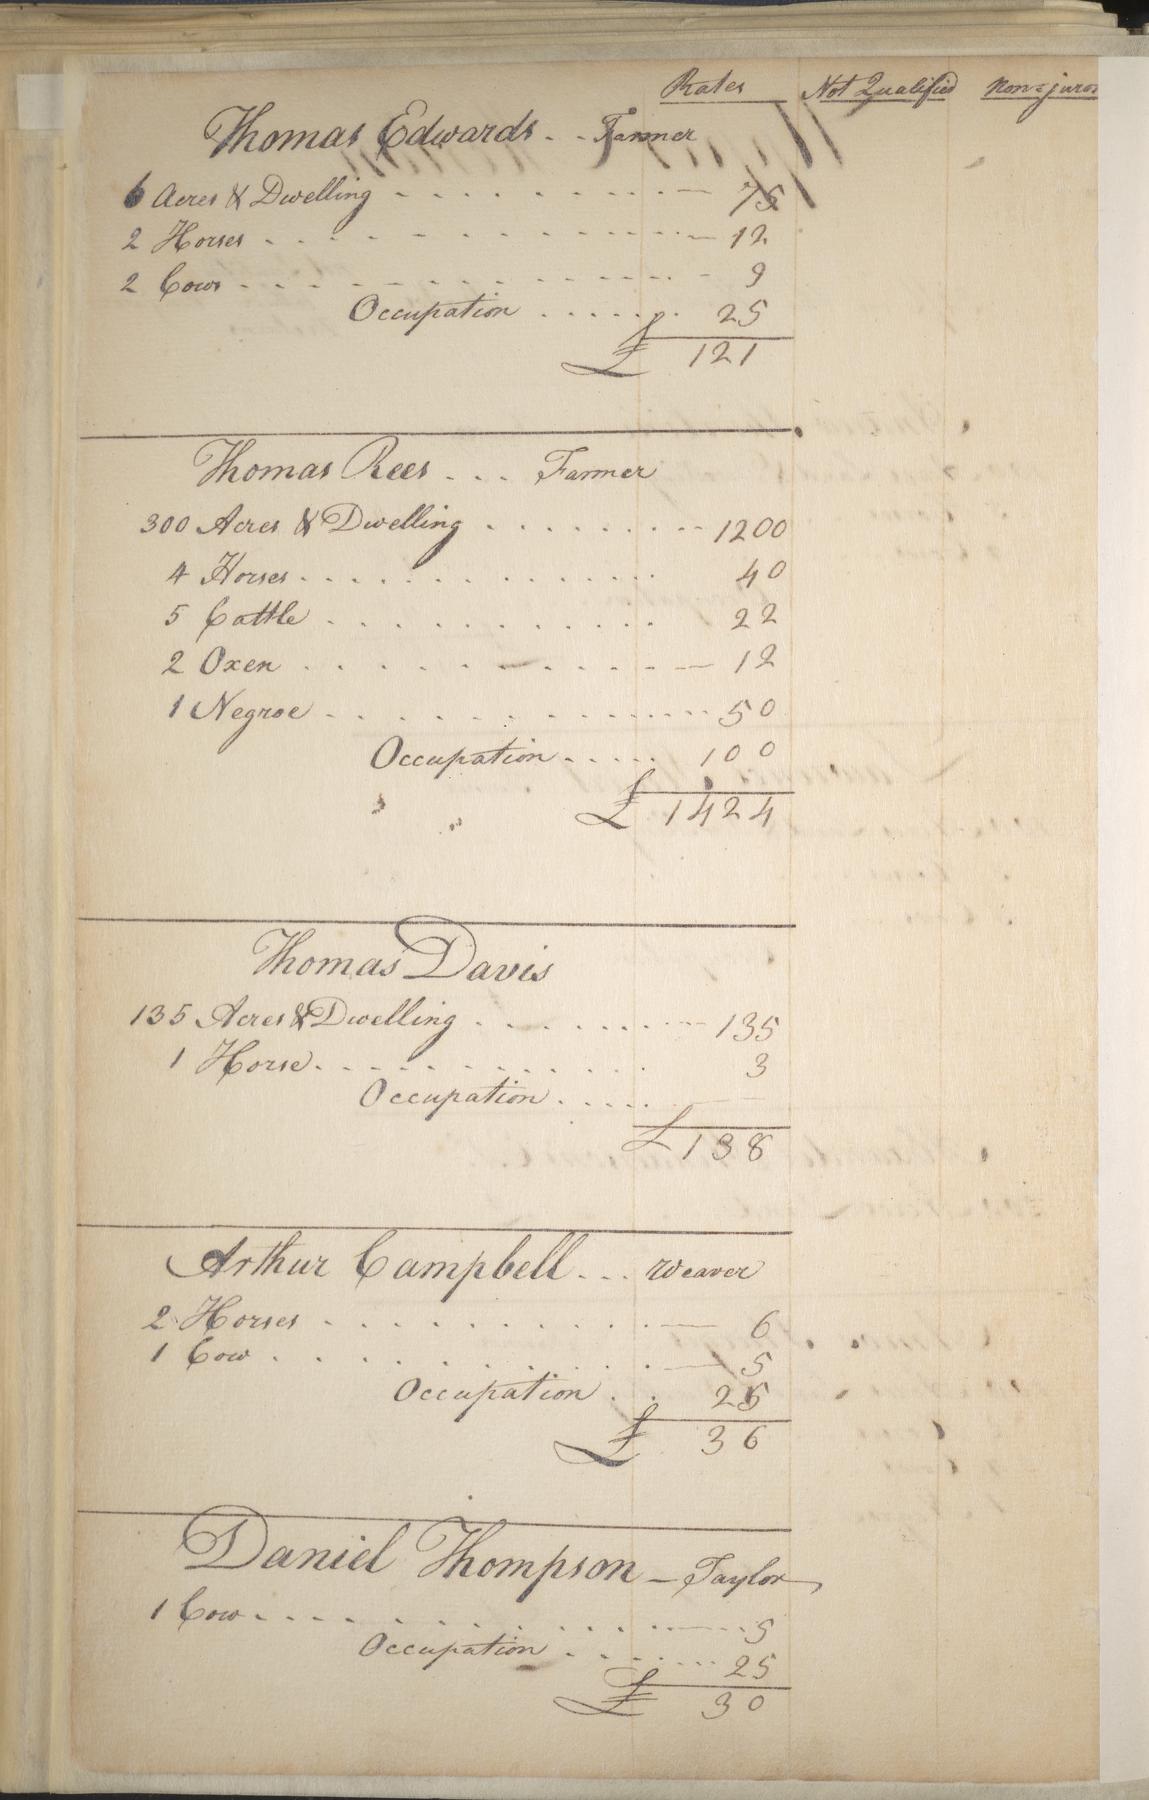 Rates Not Qualified Non=juror
Thomas Edwards - - Farmer
6 Acres & Dwelling - - - - - - - - 75
2 Horses - - - - - - - - 12
2 Cows - - - - - - - - 9
Occupation . . . . . . 25
£ 121
Thomas Rees - - - Farmer
300 Acres & Dwelling - - - - - - - - 1200
4 Horses - - - - - - - - 40
5 Cattle - - - - - - - - 22
2 Oxen - - - - - - - - 12
1 Negroe - - - - - - - - 50
Occupation . . . . . 100
£ 1424
Thomas Davis
135 Acres & Dwelling - - - - - - - - 135
1 Horse - - - - - - - - 3
Occupation . . . . . —
£ 138
Arthur Campbell - - - Weaver
2 Horses - - - - - - - - 6
1 Cow - - - - - - - - 5
Occupation . . 25
£ 36
Daniel Thompson — Taylor
1 Cow - - - - - - - - 5
Occupation . . . . . 25
£ 30